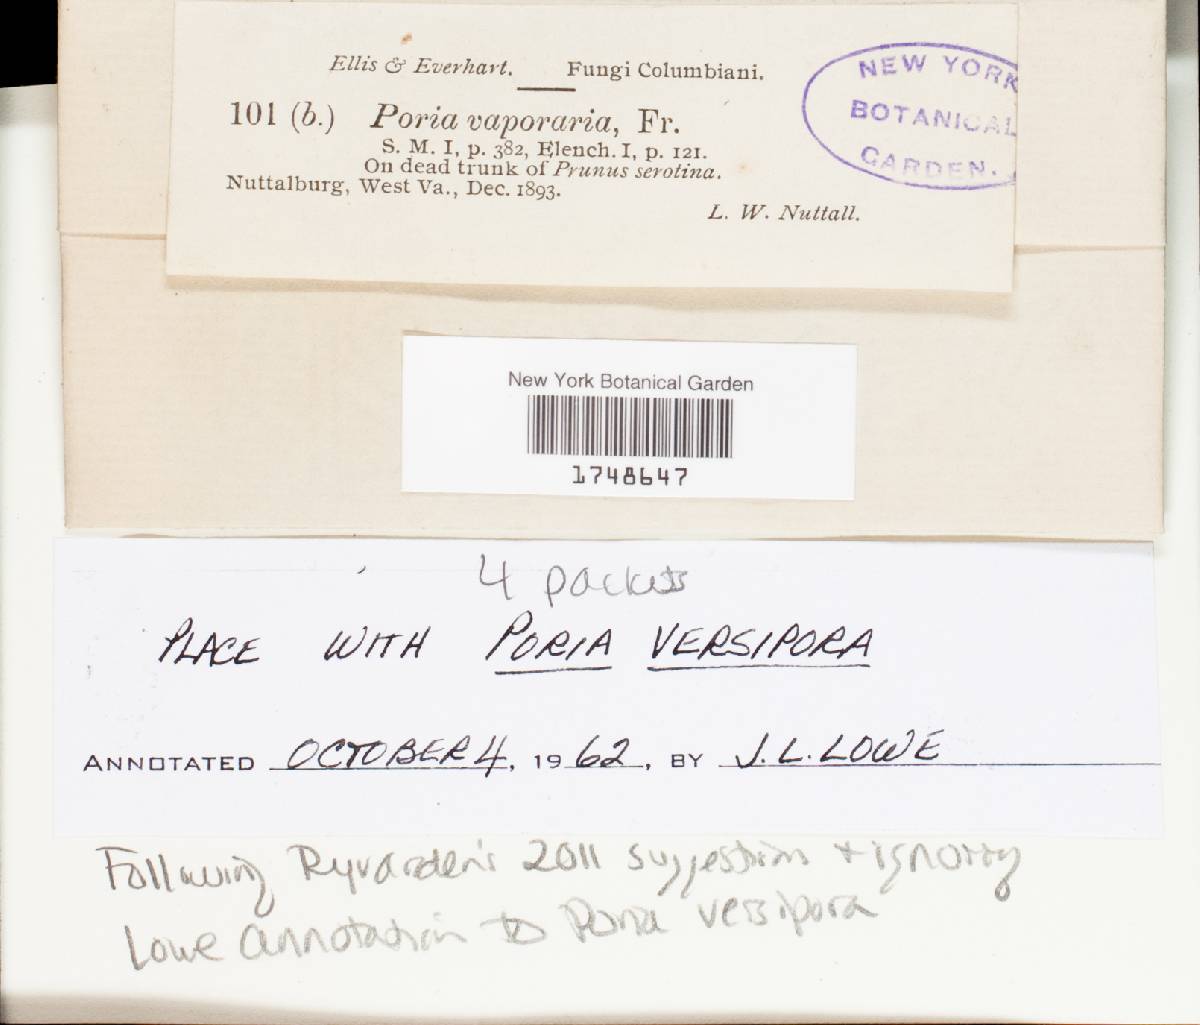 Ellis & Everhart. Fungi Columbiani.
101 (b.) Poria vaporaria, Fr.
S. M. I, p. 382, Elench. I, p. 121.
On dead trunk of Prunus serotina.
Nuttalburg, West Va., Dec. 1893.
L. W. Nuttall.
NEW YORK
BOTANICAL
GARDEN.
New York Botanical Garden
1748647
4 packets
PLACE WITH PORIA VERSIPORA
ANNOTATED OCTOBER 4, 1962, BY J. L. LOWE
Following Ryvarden's 2011 suggestion + ignoring
Lowe annotation to Poria versipora